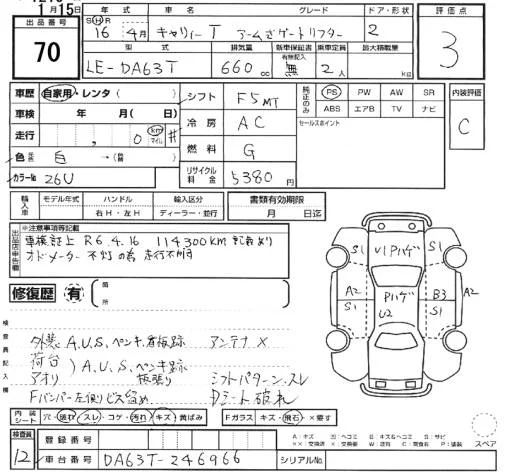 1月15日
出品番号
70
年式 車名 グレード ドア・形状
S H R 16年 4月 キャリィー T アームざゲートリフター 2
型式 排気量 新車保証書 有無記入 乗車定員 最大積載量
LE-DA63T 660cc 無 2人 kg
評価点
3
車歴 自家用・レンタ( )
車検 年 月( 日)
走行 , 0 km マイル #
色 元色 白 →( 替 )
カラーNo 26U
シフト F5MT
冷房 AC
燃料 G
リサイクル料金 5380円
純正のみ
PS PW AW SR
ABS エアB TV ナビ
セールスポイント
内装評価
C
輸入車
モデル年式 ハンドル 輸入区分
右H・左H ディーラー・並行
書類有効期限
月 日迄
出品店申告欄
※注意事項等記載
車検証上 R6.4.16 114300KM 記載あり
オドメーター 不灯の為 走行不明
修復歴 有 箇所
検査員記入欄
外装 A.U.S、ペンキ、看板跡 アンテナ×
荷台 アオリ )A.U.S、ペンキ跡 板張り
シフトパターン、スレ
Fバンパー左側リビス留め、 Dシート破れ
S1 U1 Pハゲ S1
A2 S1 Pハゲ U2 B3 S1 A2
スペア
内装シート 穴・破れ・スレ・コゲ・汚れ・キズ・黄ばみ
Fガラス キズ・飛石・×要す
検査員
12
登録番号
車台番号 DA63T-246966 シリアルNo.